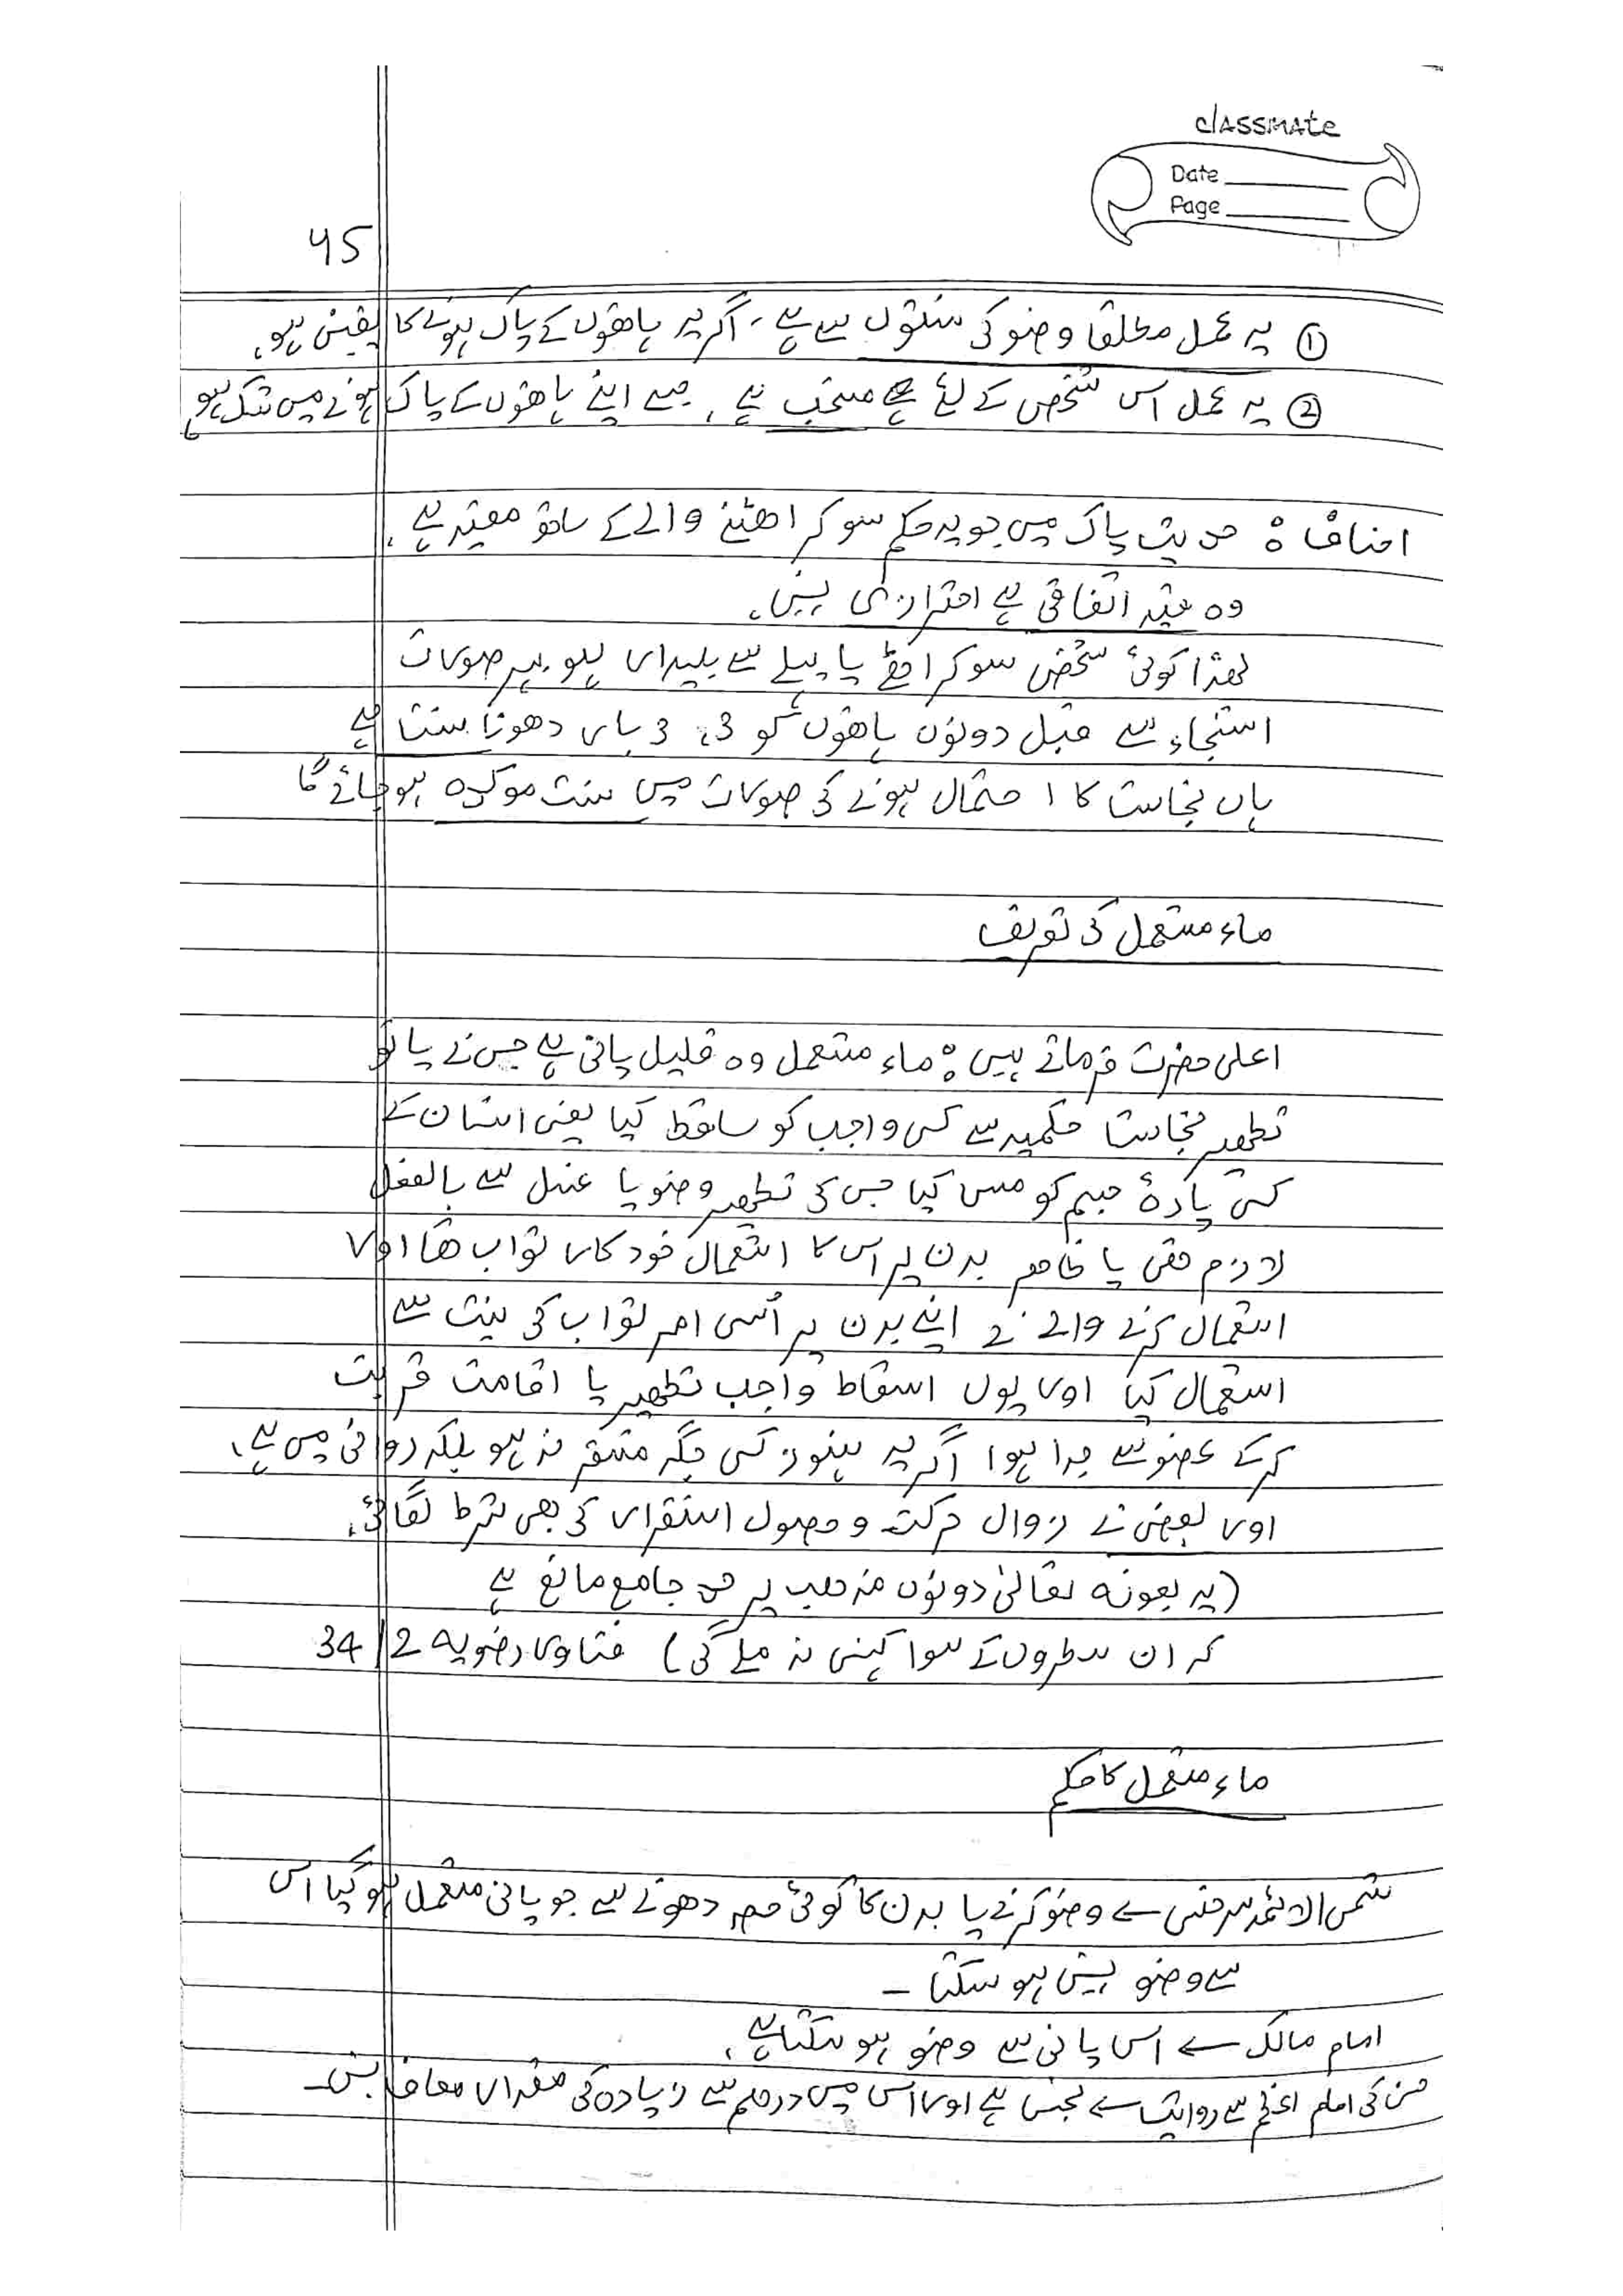 classmate
Date
Page
45
① یہ عمل مطلقا وضو کی سنتوں سے ہے ، اگرچہ ہاتھوں کے پاک ہونے کا یقین ہو،
② یہ عمل اس شخص کے لئے مستحب ہے ، جسے اپنے ہاتھوں کے پاک ہونے میں شک ہو
احناف : حدیث پاک میں جو یہ حکم سو کر اٹھنے والے کے ساتھ مقید ہے ،
وہ قید اتفاقی ہے احترازی نہیں ،
لھذا کوئی شخص سو کر اٹھے یا پہلے سے بیدار ہو بہر صورت
استنجاء سے قبل دونوں ہاتھوں کو 3، 3 بار دھونا سنت ہے
ہاں نجاست کا احتمال ہونے کی صورت میں سنت موکدہ ہو جائے گا
ماء مستعمل کی تعریف
اعلی حضرت فرماتے ہیں : ماء مستعمل وہ قلیل پانی ہے جس نے یا تو
تطھیر نجاست حکمیہ سے کسی واجب کو ساقط کیا یعنی انسان کے
کسی پارۂ جسم کو مس کیا جس کی تطھیر وضو یا غسل سے بالفعل
لازم تھی یا ظاھر بدن پر اس کا استعمال خود کار ثواب تھا اور
استعمال کرنے والے نے اپنے بدن پر اُسی امر ثواب کی نیت سے
استعمال کیا اور یوں اسقاط واجب تطھیر یا اقامت قربت
کرکے عضو سے جدا ہوا اگرچہ ہنوز کسی جگہ مستقر نہ ہو بلکہ روانی میں ہے ،
اور بعض نے زوال حرکت و حصول استقرار کی بھی شرط لگائی ،
(یہ بعونہ تعالیٰ دونوں مذھب پر حد جامع مانع ہے
کہ ان سطروں کے سوا کہیں نہ ملے گی) فتاوی رضویہ 2/34
ماء مستعمل کا حکم
شمس الائمہ سرخسی سے وضو کرنے یا بدن کا کوئی حصہ دھونے سے جو پانی مستعمل ہو گیا اس
سے وضو نہیں ہو سکتا ۔
امام مالک سے اس پانی سے وضو ہو سکتا ہے ،
حسن کی امام اعظم سے روایت سے نجس ہے اور اس میں درھم سے زیادہ کی مقدار معاف نہیں۔